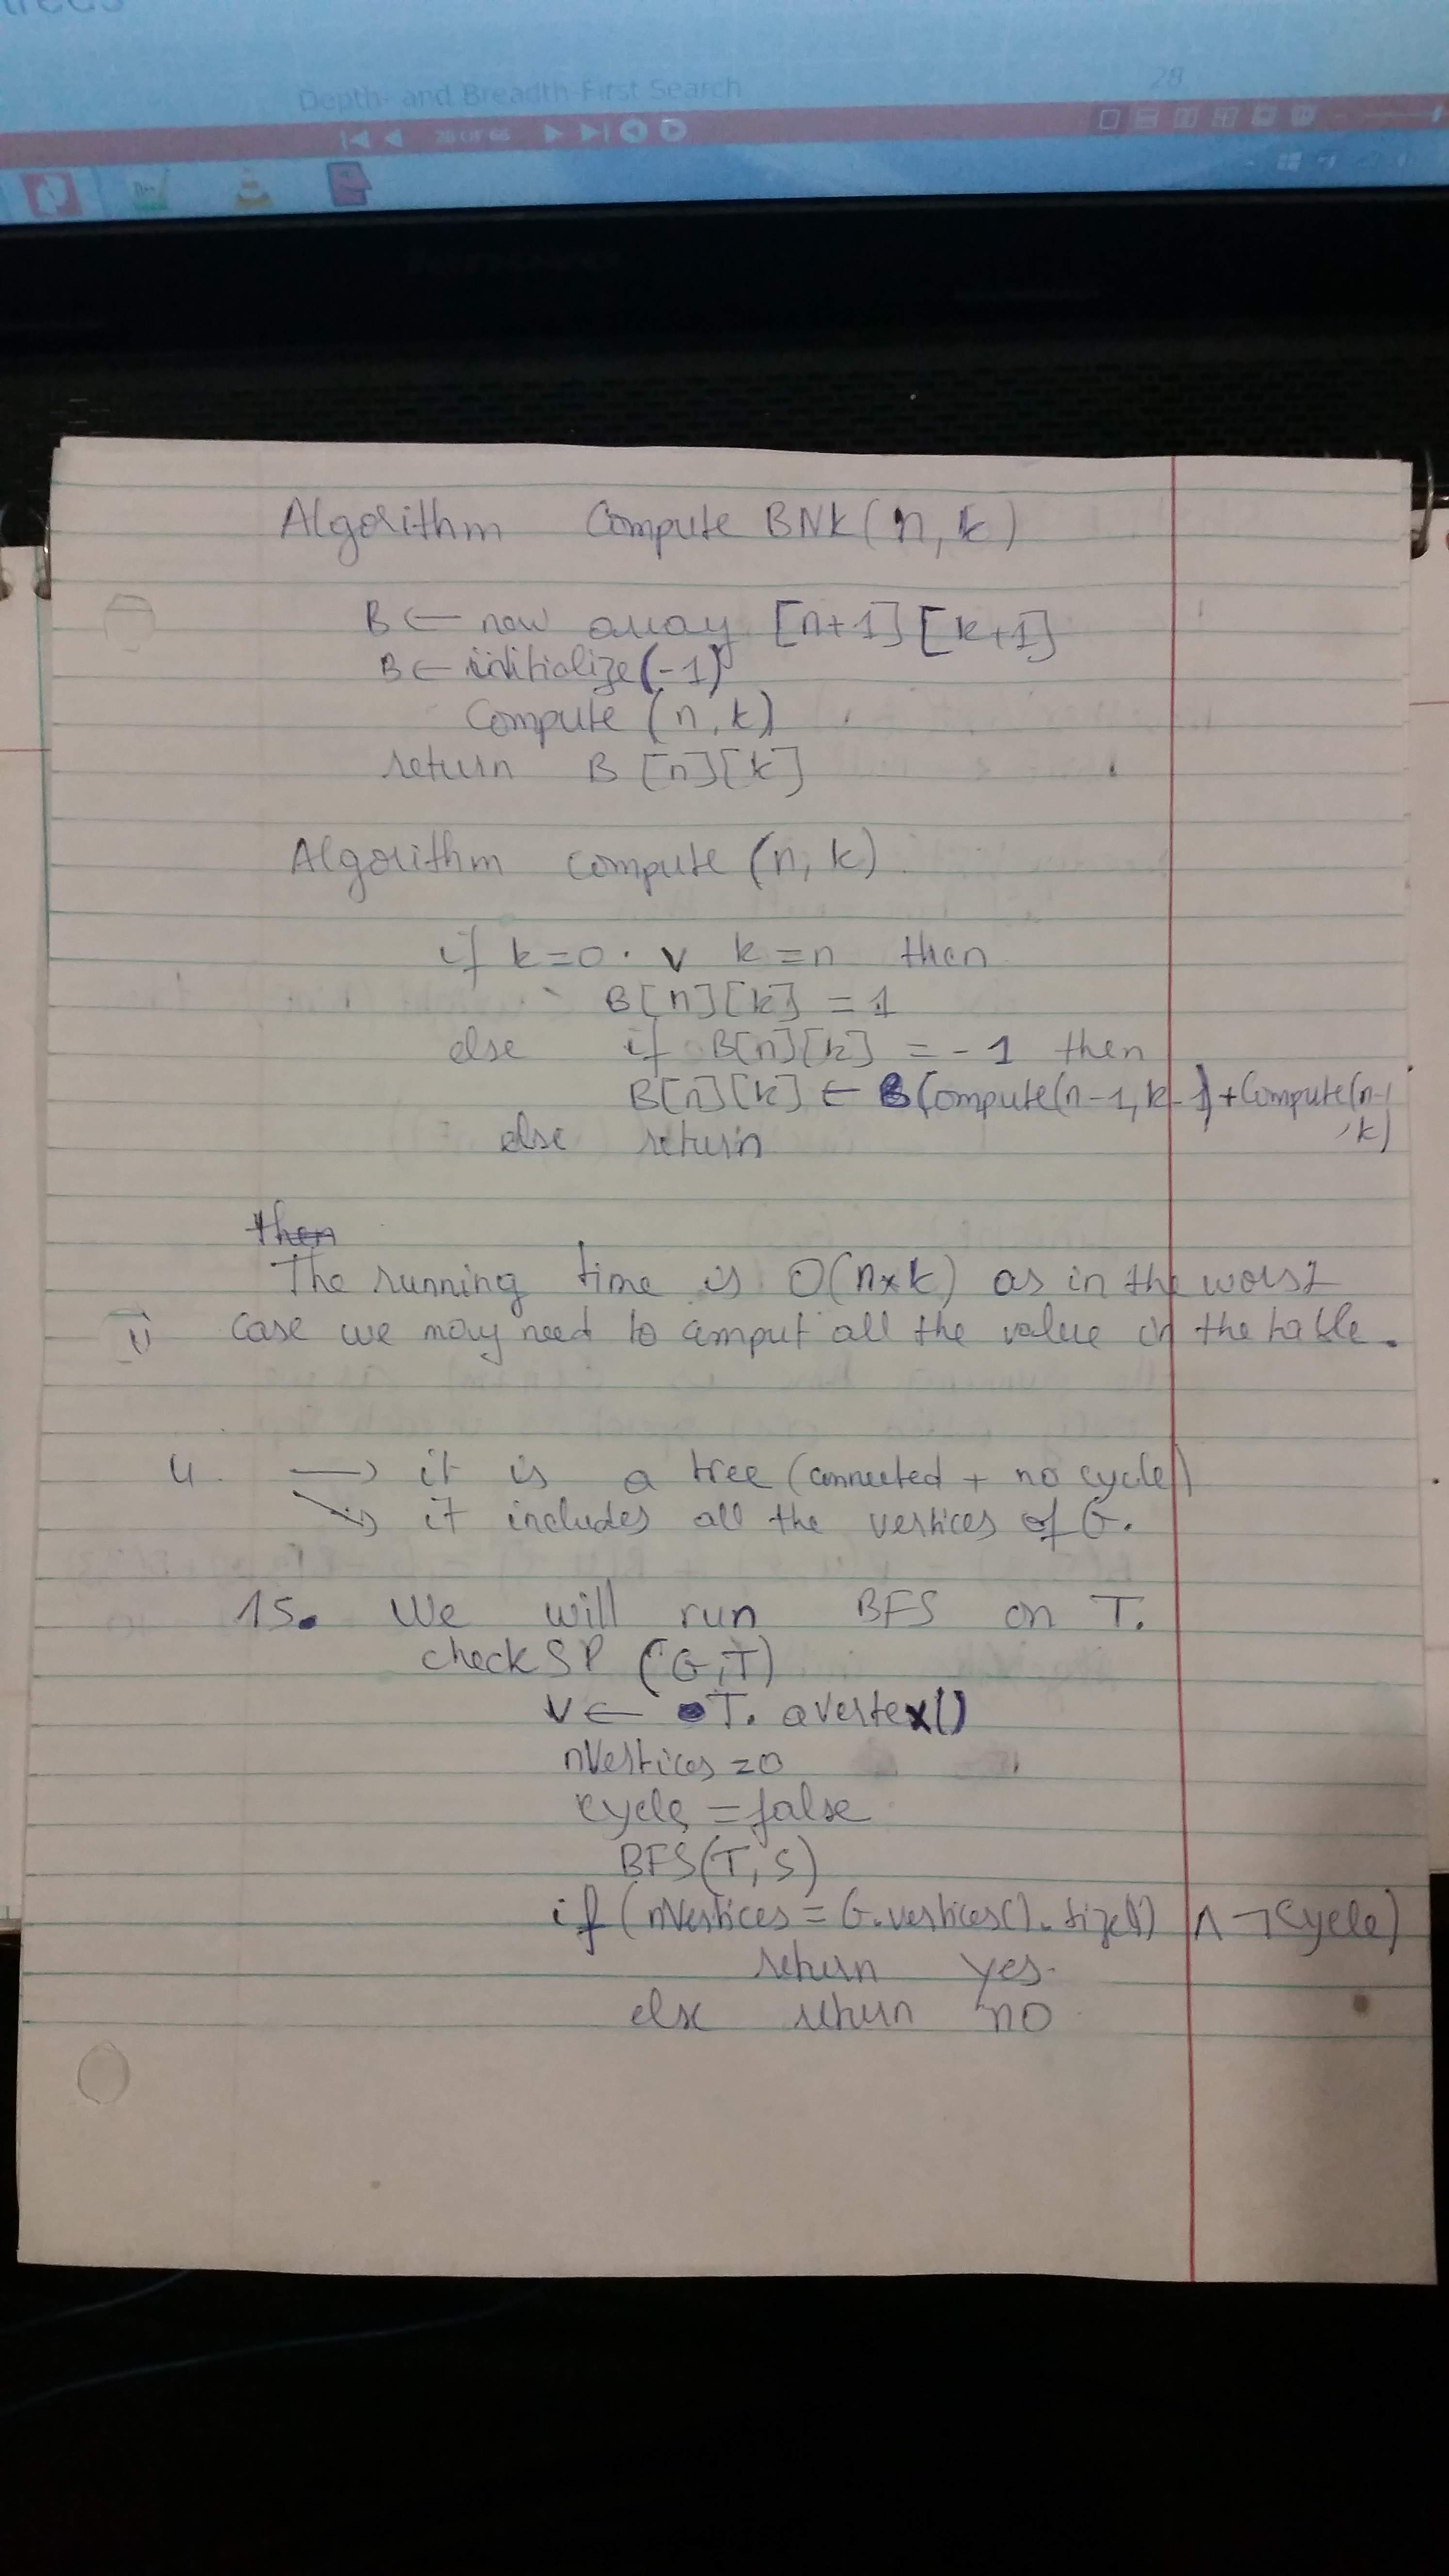 Depth- and Breadth-First Search 28
28 of 66
lenovo
Algorithm Compute BNK(n, k)
B ← new array [n+1][k+1]
B ← initialize(-1)
Compute (n, k)
return B[n][k]
Algorithm compute (n, k)
if k=0 ∨ k=n then
B[n][k] = 1
else if B[n][k] = -1 then
B[n][k] ← B(Compute(n-1, k-1) + Compute(n-1
, k)
else return
then
The running time is O(n×k) as in the worst
case we may need to comput all the value in the table.
4. → it is a tree (connected + no cycle)
→ it includes all the vertices of G.
15. We will run BFS on T.
check SP (G,T)
v ← T. avertex()
nVertices = 0
cycle = false
BFS(T, S)
if (nVertices = G.vertices().size() ∧ ¬cycle)
return yes.
else return no